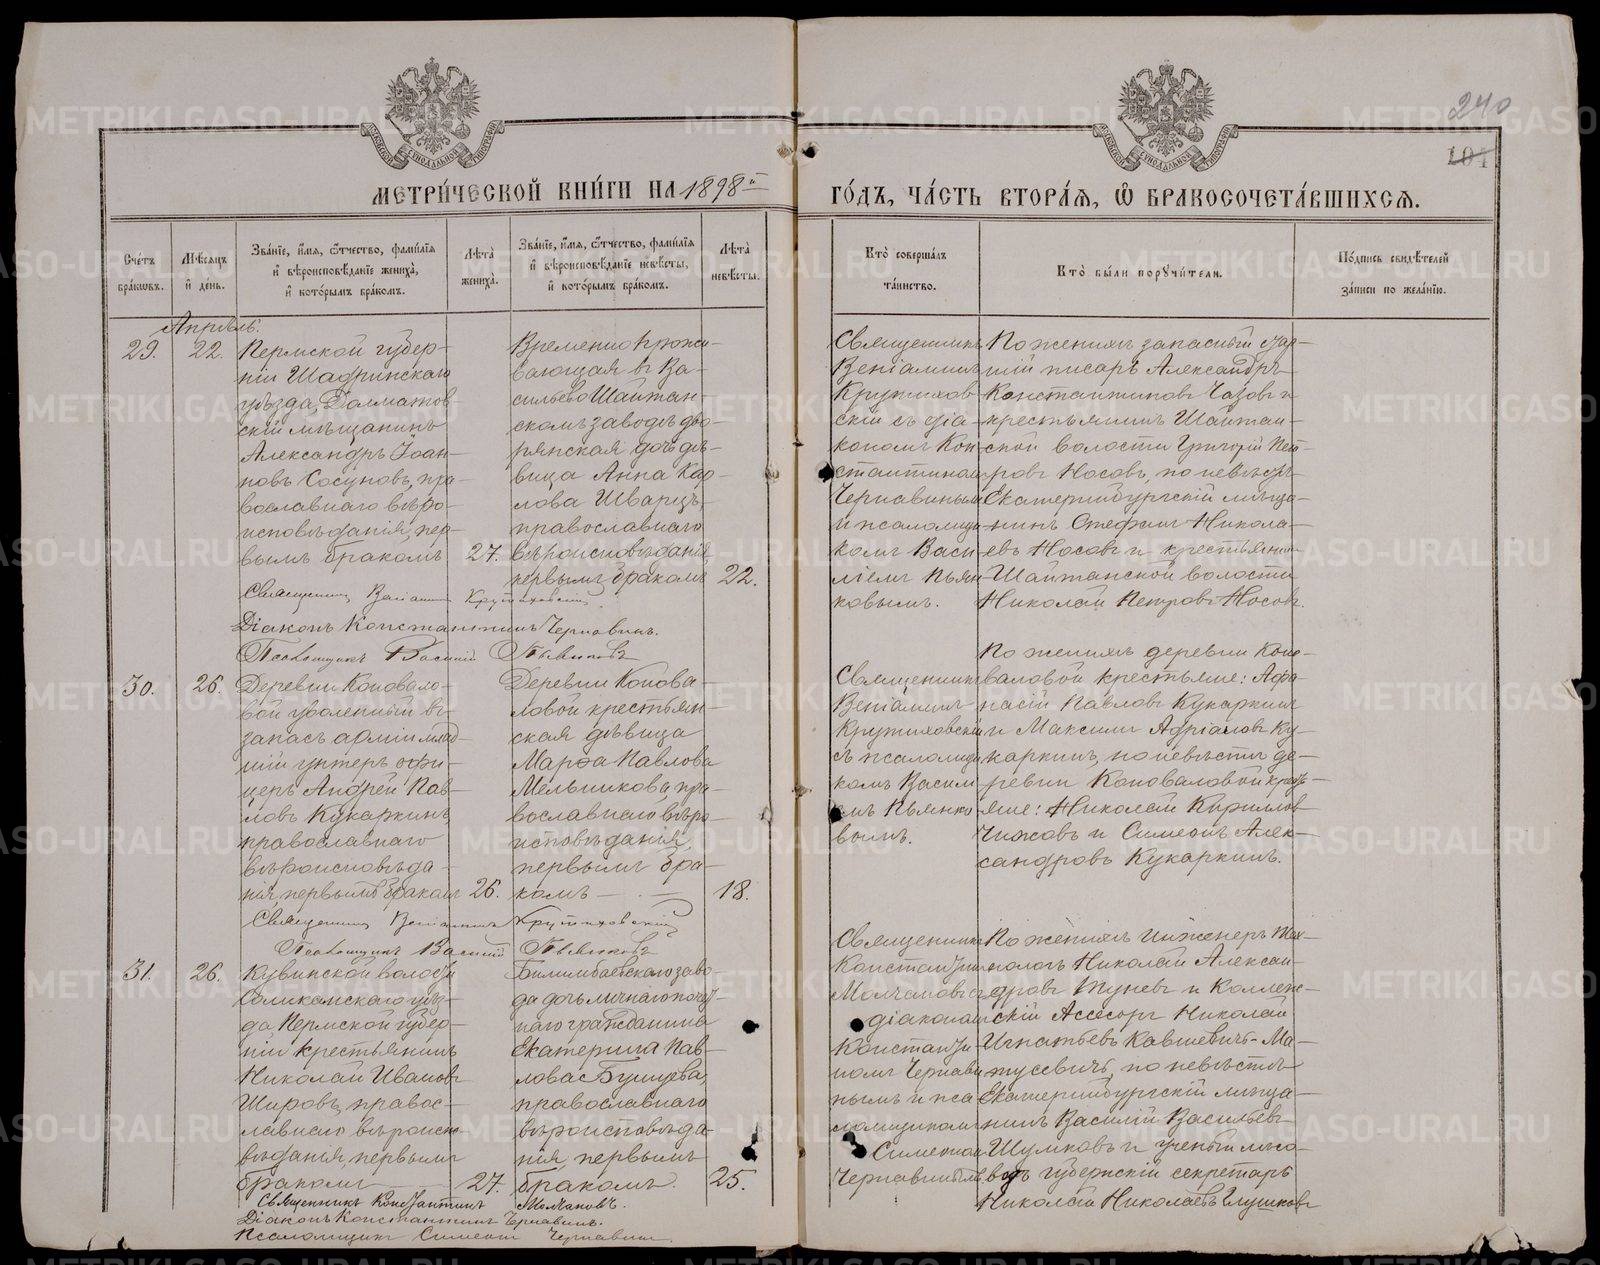 240
101
МЕТРИ́ЧЕСКОЙ КНИ́ГИ НА 1898й
ГО́ДЪ, ЧА́СТЬ ВТОРА́Я, Ѡ҆ БРАКОСОЧЕТА́ВШИХСЯ.
Сче́тъ бра́ковъ.
Мѣ́сяцъ и҆ де́нь.
Зва́нїе, и҆́мя, ѻ҆́тчество, фами́лїя
и҆ вѣроисповѣ́данїе жениха̀,
и҆ кото́рымъ бра́комъ.
Лѣ́та жениха̀.
Зва́нїе, и҆́мя, ѻ҆́тчество, фами́лїя
и҆ вѣроисповѣ́данїе невѣ́сты,
и҆ кото́рымъ бра́комъ.
Лѣ́та невѣ́сты.
Кто̀ соверша́лъ
та́инство.
Кто̀ бы́ли порꙋчи́тели.
По́дпись свидѣ́телей
за́писи по жела́нїю.
Апрѣль.
29.
22.
Пермской губер-
ніи Шадринскаго
уѣзда, Далматов-
скій мѣщанинъ
Александръ Іоан-
новъ Сосуновъ, пра-
вославнаго вѣро-
исповѣданія, пер-
вымъ бракомъ
27.
Временно прожи-
вающая въ Ва-
сильево Шайтан-
скомъ заводѣ дво-
рянская дочь дѣ-
вица Анна Кар-
лова Шварцъ,
православнаго
вѣроисповѣданія,
первымъ бракомъ
22.
Священникъ
Веніаминъ
Крутихов-
скій съ діа-
кономъ Кон-
стантиномъ
Чернавинымъ
и псаломщи-
комъ Васи-
ліемъ Пьян-
ковымъ.
По женихѣ запасный стар-
шій писарь Александръ
Константиновъ Чазовъ и
крестьянинъ Шайтан-
ской волости Григорій Пет-
ровъ Носовъ, по невѣстѣ
Екатеринбургскій мѣща-
нинъ Стефанъ Никола-
евъ Носовъ и крестьянинъ
Шайтанской волости
Николай Петровъ Носовъ.
Священникъ Веніаминъ Крутиховскій.
Діаконъ Константинъ Чернавинъ.
Псаломщикъ Василій Пьянковъ
30.
26.
Деревни Коновало-
вой уволенный въ
запасъ арміи млад-
шій унтеръ офи-
церъ Андрей Пав-
ловъ Кукаркинъ,
православнаго
вѣроисповѣда-
нія, первымъ бракомъ
26.
Деревни Конова-
ловой крестьян-
ская дѣвица
Марѳа Павлова
Мельникова, пра-
вославнаго вѣро-
исповѣданія,
первымъ бра-
комъ
18.
Священникъ
Веніаминъ
Крутиховскій
съ псаломщи-
комъ Васил
емъ Пьянко-
вымъ.
По женихѣ деревни Коно-
валовой крестьяне: Афа-
насій Павловъ Кукаркинъ
и Максимъ Адріановъ Ку-
каркинъ, по невѣстѣ де-
ревни Коноваловой кресть-
яне: Николай Кириллов
Чижовъ и Симеонъ Алек-
сандровъ Кукаркинъ.
Священникъ Веніаминъ Крутиховскій
Псаломщикъ Василій Пьянковъ
31.
26.
Кувинской волости
Соликамскаго уѣз-
да, Пермской губер-
ніи крестьянинъ
Николай Ивановъ
Шировъ, правос-
лавнаго вѣроиспо-
вѣданья, первымъ
бракомъ
27.
Билимбаевскаго заво-
да дочь личнаго почет-
наго гражданина
Екатерина Пав-
лова
православнаго
вѣроисповѣда-
нія, первымъ
бракомъ.
25.
Священникъ
Константинъ
Молчановъ съ
діакономъ
Константи-
номъ Чернави-
нымъ и пса-
ломщикомъ
Симеономъ
Чернавинымъ
По женихѣ Инженеръ Тех-
нологъ Николай Алексан-
дровъ Туневъ и Коллеж-
скій Асессоръ Николай
Игнатьевъ Кавшевичъ-Ма-
тусевичъ, по невѣстѣ
Екатеринбургскій мѣща-
нинъ Василій Васильевъ
Шумковъ и ученый лѣсо-
водъ губернскій секретарь
Николай Николаевъ Глушковъ
Священникъ Константинъ Молчановъ.
Діаконъ Константинъ Чернавинъ.
Псаломщикъ Симеонъ Чернавинъ.
METRIKI.GASO-URAL.RU